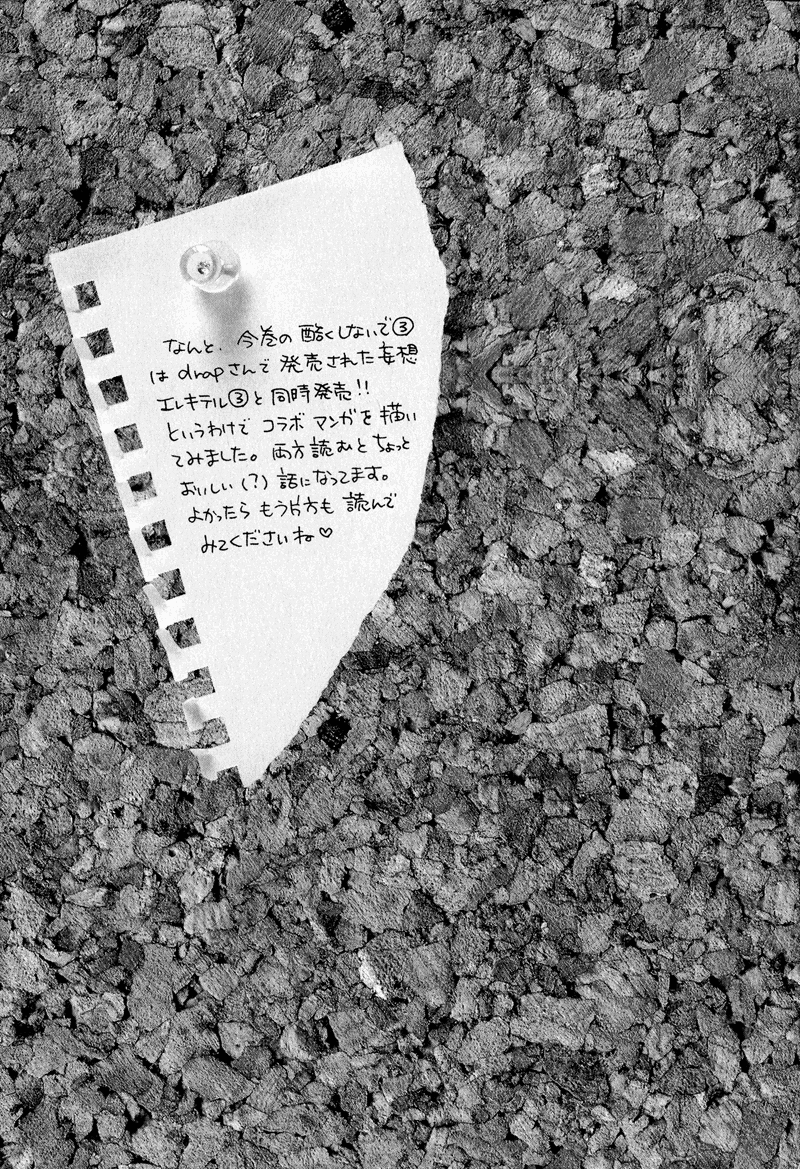 なんと、今巻の酷くしないで③
は drapさんで発売された妄想
エレキテル③と同時発売!!
というわけで コラボマンガを描い
てみました。両方読むとちょっと
おいしい(?)話になってます。
よかったら もう片方も 読んで
みてくださいね♡